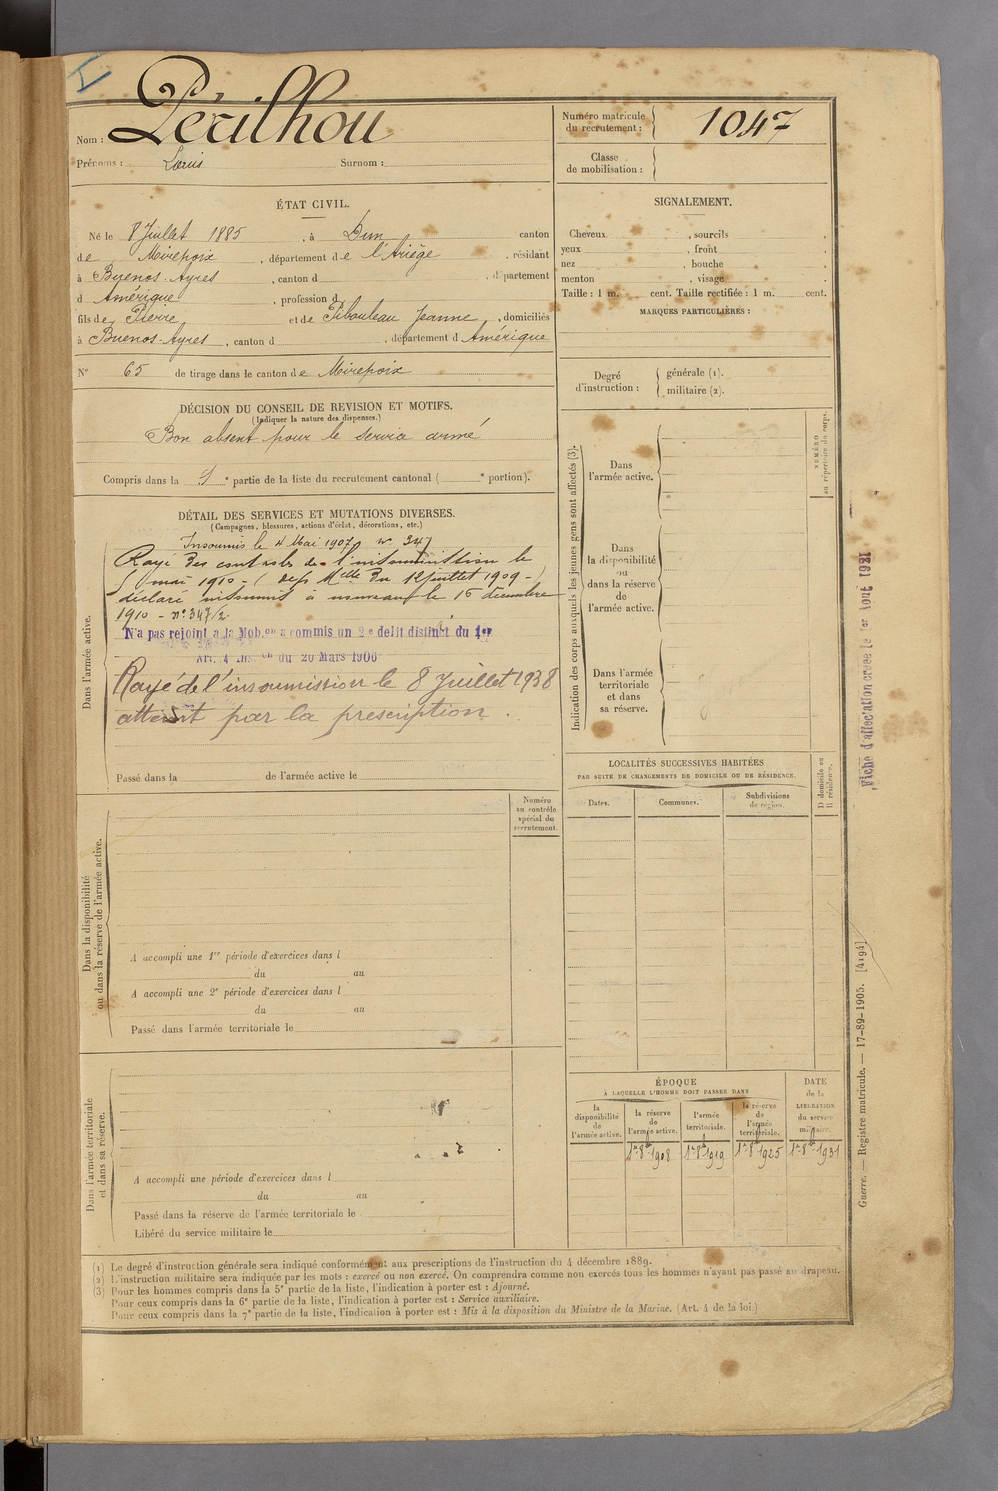 Nom : Périlhou
Prénoms : Louis Surnom :
Numéro matricule
du recrutement : 1047
Classe
de mobilisation :
ÉTAT CIVIL.
Né le 8 Juillet 1885, à Dun canton
de Mirepoix, département de l'Ariège, résidant
à Buenos-Ayres, canton d , département
d Amérique, profession d
fils de Pierre et de Pibouleau Jeanne, domiciliés
à Buenos-Ayres, canton d , département d Amérique
N° 65 de tirage dans le canton de Mirepoix
DÉCISION DU CONSEIL DE REVISION ET MOTIFS.
(Indiquer la nature des dispenses.)
Bon absent pour le service armé
Compris dans la 1 e partie de la liste du recrutement cantonal ( e portion).
SIGNALEMENT.
Cheveux , sourcils ,
yeux , front ,
nez , bouche ,
menton , visage
Taille : 1 m. cent. Taille rectifiée : 1 m. cent.
MARQUES PARTICULIÈRES :
Degré
d'instruction :
générale (1).
militaire (2).
DÉTAIL DES SERVICES ET MUTATIONS DIVERSES.
(Campagnes, blessures, actions d'éclat, décorations, etc.)
Dans l'armée active.
Insoumis le 4 Mai 1907 n° 347
Rayé des contrôles de l'insoumission le
mai 1910 - ( Melle du 12 juillet 1909 - )
déclaré insoumis à nouveau le 16 décembre
1910 - n° 347/2.
N'a pas rejoint a la Mob.on a commis un 2e delit distinct du 1er
Art. 4 Ins.on du 20 Mars 1906
Rayé de l'insoumission le 8 Juillet 1938
atteint par la prescription.
Passé dans la de l'armée active le
Indication des corps auxquels les jeunes gens sont affectés (3).
NUMÉRO
au répertoire du corps.
Dans
l'armée active.
Dans
la disponibilité
ou
dans la réserve
de
l'armée active.
Dans l'armée
territoriale
et dans
sa réserve.
Fiche d'affectation créée le 1er Août 1921
LOCALITÉS SUCCESSIVES HABITÉES
PAR SUITE DE CHANGEMENTS DE DOMICILE OU DE RÉSIDENCE.
Dates.
Communes.
Subdivisions
de région.
D domicile ou
R résidence.
Dans la disponibilité
ou dans la réserve de l'armée active.
Numéro
au contrôle
spécial du
recrutement.
A accompli une 1re période d'exercices dans l
du au
A accompli une 2e période d'exercices dans l
du au
Passé dans l'armée territoriale le
Dans l'armée territoriale
et dans sa réserve.
A accompli une période d'exercices dans l
du au
Passé dans la réserve de l'armée territoriale le
Libéré du service militaire le
ÉPOQUE
À LAQUELLE L'HOMME DOIT PASSER DANS
la
disponibilité
de
l'armée active.
la réserve
de
l'armée active.
l'armée
territoriale.
la réserve
de
l'armée
territoriale.
DATE
de la
LIBÉRATION
du service
militaire.
1er 8bre 1908
1er 8bre 1919
1er 8bre 1925
1er 8bre 1931
Guerre. — Registre matricule. — 17-89-1905. [4194]
(1) Le degré d'instruction générale sera indiqué conformément aux prescriptions de l'instruction du 4 décembre 1889.
(2) L'instruction militaire sera indiquée par les mots : exercé ou non exercé. On comprendra comme non exercés tous les hommes n'ayant pas passé au drapeau.
(3) Pour les hommes compris dans la 5e partie de la liste, l'indication à porter est : Ajourné.
Pour ceux compris dans la 6e partie de la liste, l'indication à porter est : Service auxiliaire.
Pour ceux compris dans la 7e partie de la liste, l'indication à porter est : Mis à la disposition du Ministre de la Marine. (Art. 4 de la loi.)